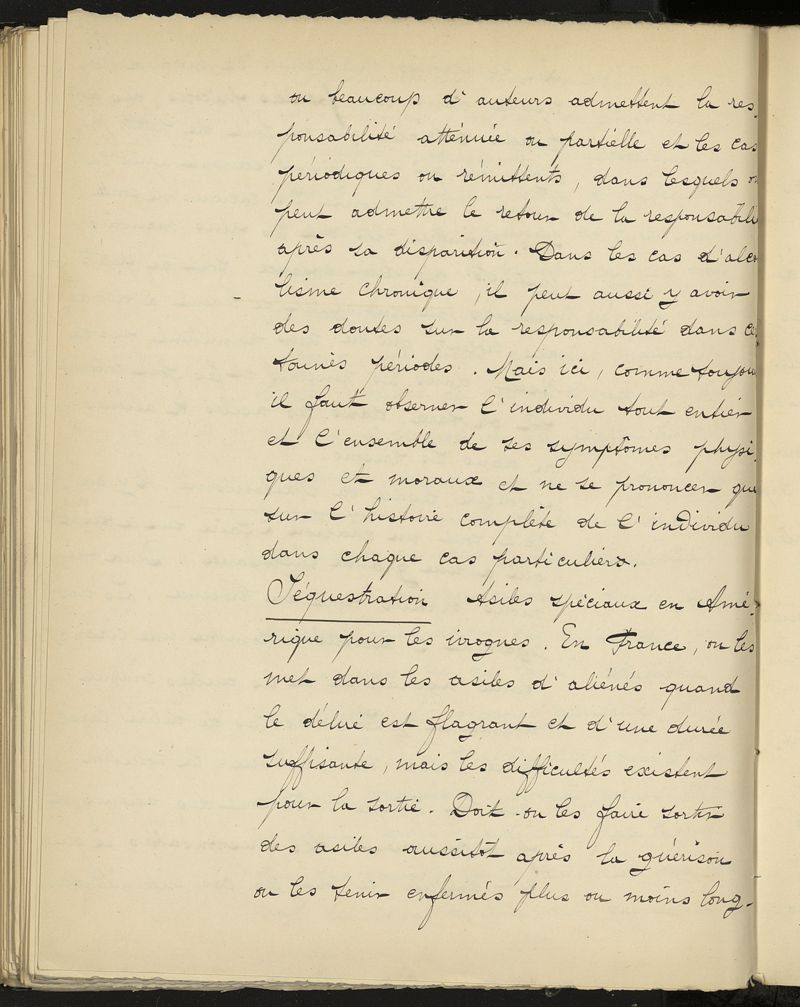 ou beaucoup d'auteurs admettent la res-
ponsabilité atténuée ou partielle et les cas
périodiques ou rémittents, dans lesquels on
peut admettre le retour de la responsabili
après sa disparition. Dans les cas d'alco
lisme chronique, il peut aussi y avoir
des doutes sur la responsabilité dans cer
taines périodes. Mais ici, comme toujours
il faut observer l'individu tout entier
et l'ensemble de ses symptômes physi-
ques et moraux et ne se prononcer que
sur l'histoire complète de l'individu
dans chaque cas particuliers.
Séquestration Asiles spéciaux en Amé-
rique pour les ivrognes. En France, on les
met dans les asiles d'aliénés quand
le délire est flagrant et d'une durée
suffisante, mais les difficultés existent
pour la sortie. Doit-on les faire sortir
des asiles aussitôt après la guérison
ou les tenir enfermés plus ou moins long-